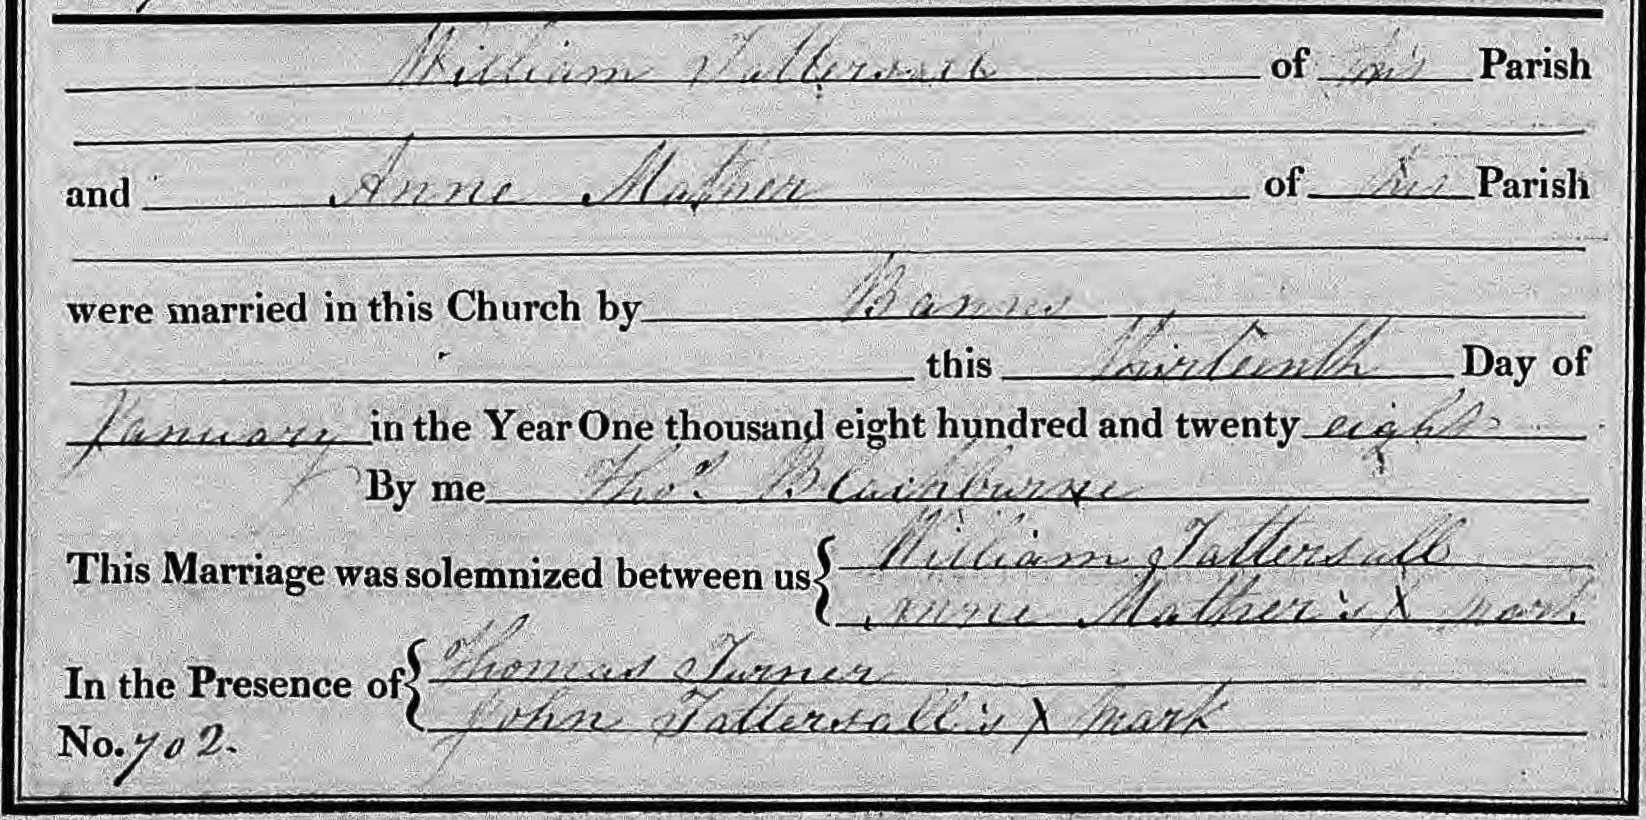 William Tattersall of this Parish
and Anne Mather of this Parish
were married in this Church by Banns
this thirteenth Day of
January in the Year One thousand eight hundred and twenty eight
By me Thos. Blackburne
This Marriage was solemnized between us { William Tattersall
Anne Mather's X mark
In the Presence of { Thomas Turner
John Tattersall's X mark
No. 702.